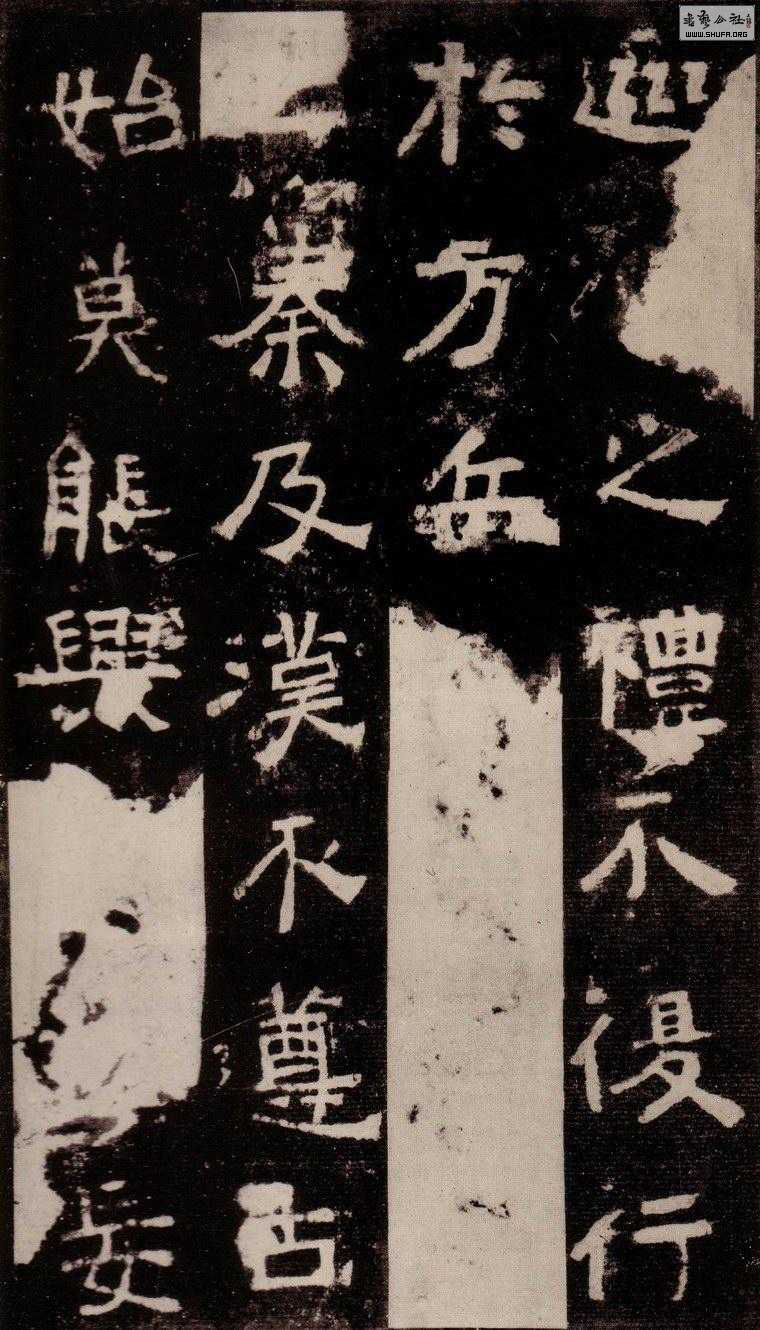 巡之禮不復行
於方岳
秦及漢不遵古
始莫能興妄
书艺公社
WWW.SHUFA.ORG